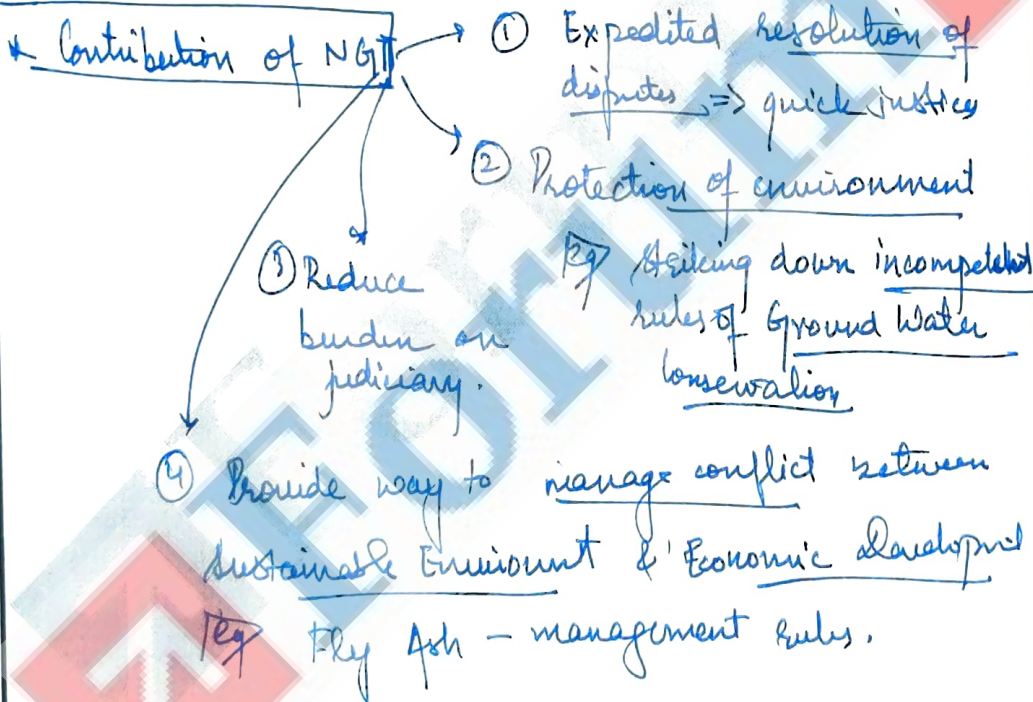 * Contribution of NGT
① Expedited resolution of
disputes => quick justice
② Protection of environment
eg striking down incompetent
rules of Ground Water
Conservation
③ Reduce
burden on
judiciary.
④ Provide way to manage conflict between
Sustainable Enviornment & Economic
eg Fly Ash - management rules.
Forum